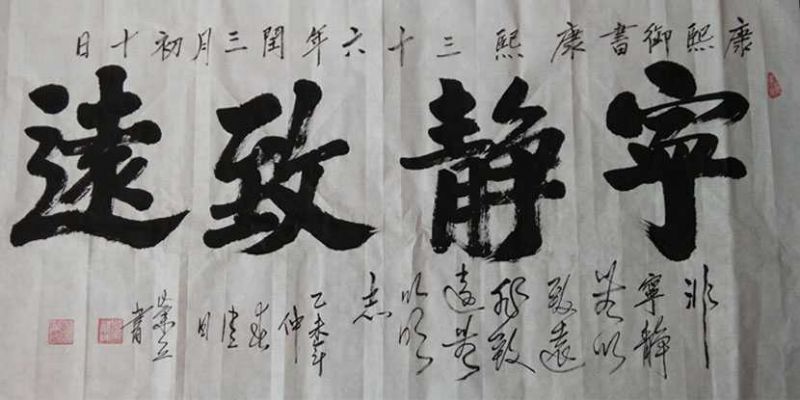 康熙御書康熙三十六年閏三月初十日
寧静致遠
非
寧静
無以
致遠
非致
遠無
以明
志
乙未年
仲
春
佳
日
書